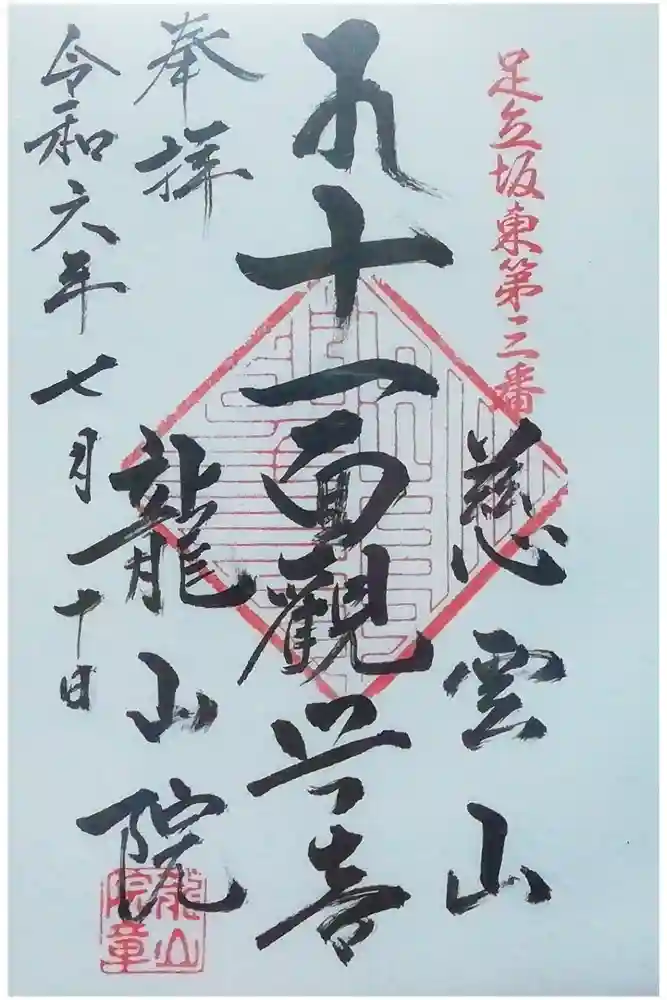 足立坂東第三番
慈雲山
十一面觀世音
奉拝
龍山院
令和六年七月十日